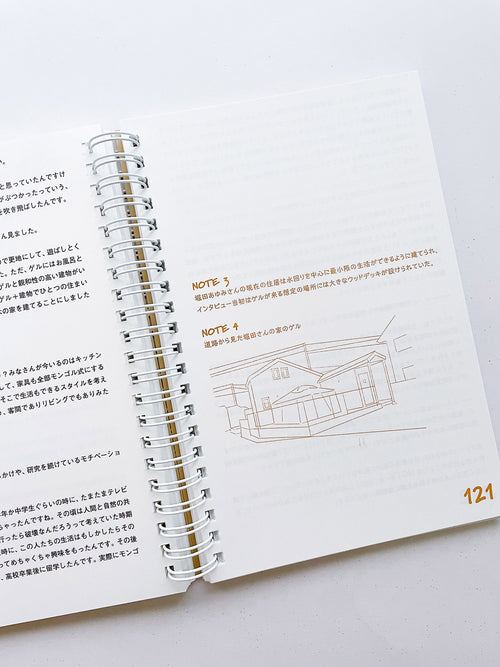 た。
と思っていたんですけ
がぶつかったっていう、
を吹き飛ばしたんです。
さん見ました。
ので更地にして、遊ばしとく
た。ただ、ゲルにはお風呂と
ゲルと親和性の高い建物がい
ゲル＋建物でひとつの住まい
の家を建てることにしました
？みなさんが今いるのはキッチン
して、家具も全部モンゴル式にする
そこで生活もできるスタイルを考え
、客間でありリビングでもありみた
っかけや、研究を続けているモチベーショ
年か中学生ぐらいの時に、たまたまテレビ
ちゃったんですね。その頃は人間と自然の共
行ったら破壊なんだろうって考えていた時期
時に、この人たちの生活はもしかしたらその
ってめちゃくちゃ興味をもったんです。その後
、高校卒業後に留学したんです。実際にモンゴ
NOTE 3
堀田あゆみさんの現在の住居は水回りを中心に最小限の生活ができるように建てられ、
インタビュー当初はゲルが来る想定の場所には大きなウッドデッキが設けられていた。
NOTE 4
道路から見た堀田さんの家のゲル
121